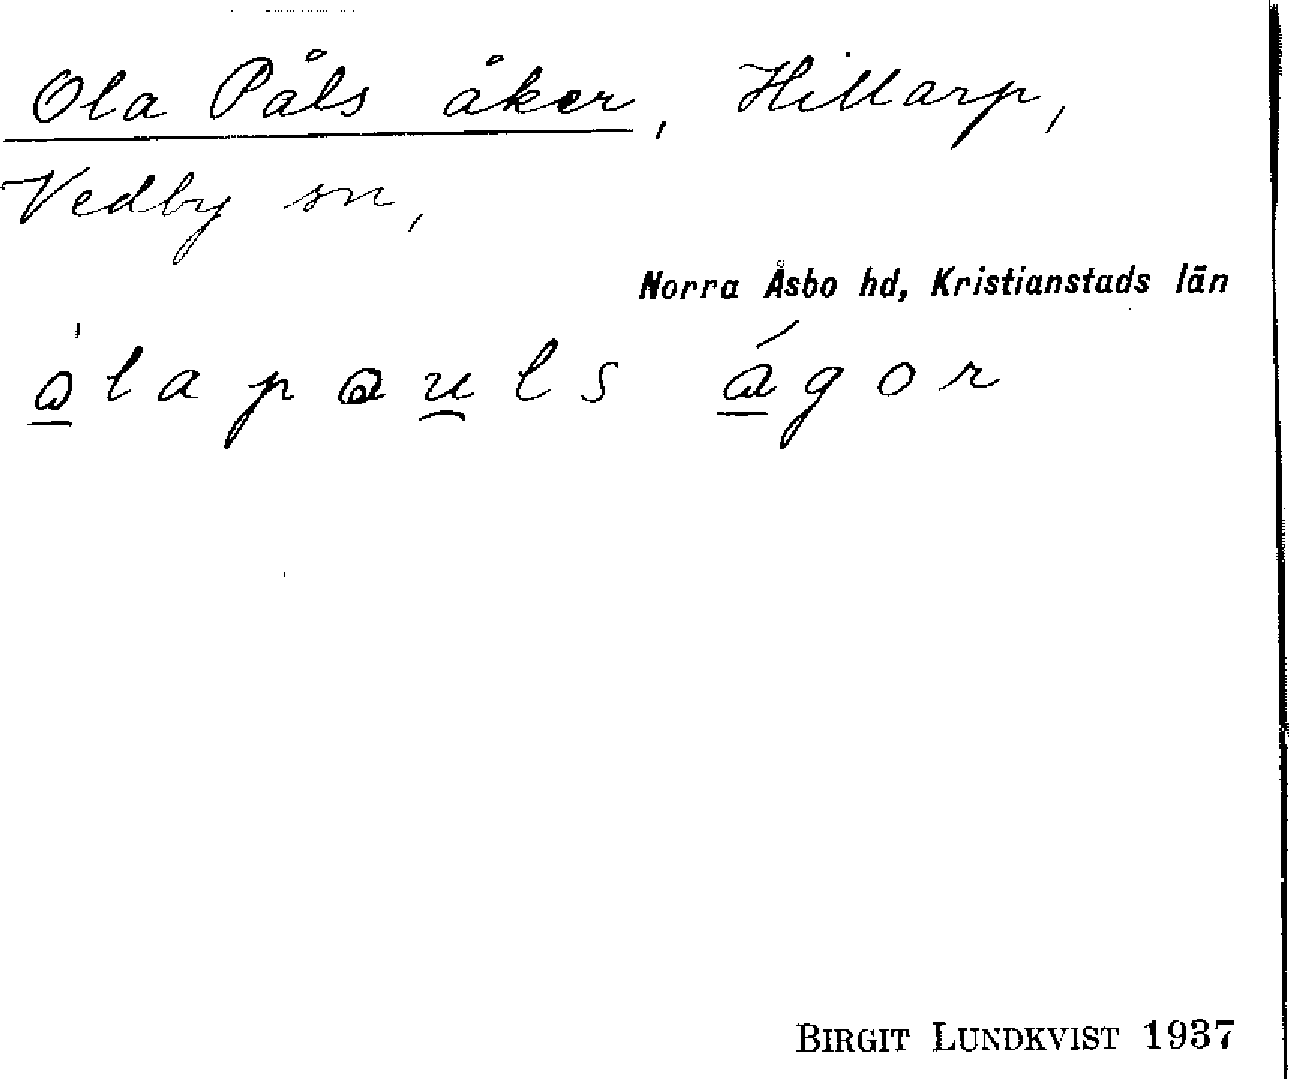 Ola Påls åker, Hillarp,
Vedby sn,
Norra Åsbo hd, Kristianstads län
òlapau̯ls ágor
BIRGIT LUNDKVIST 1937